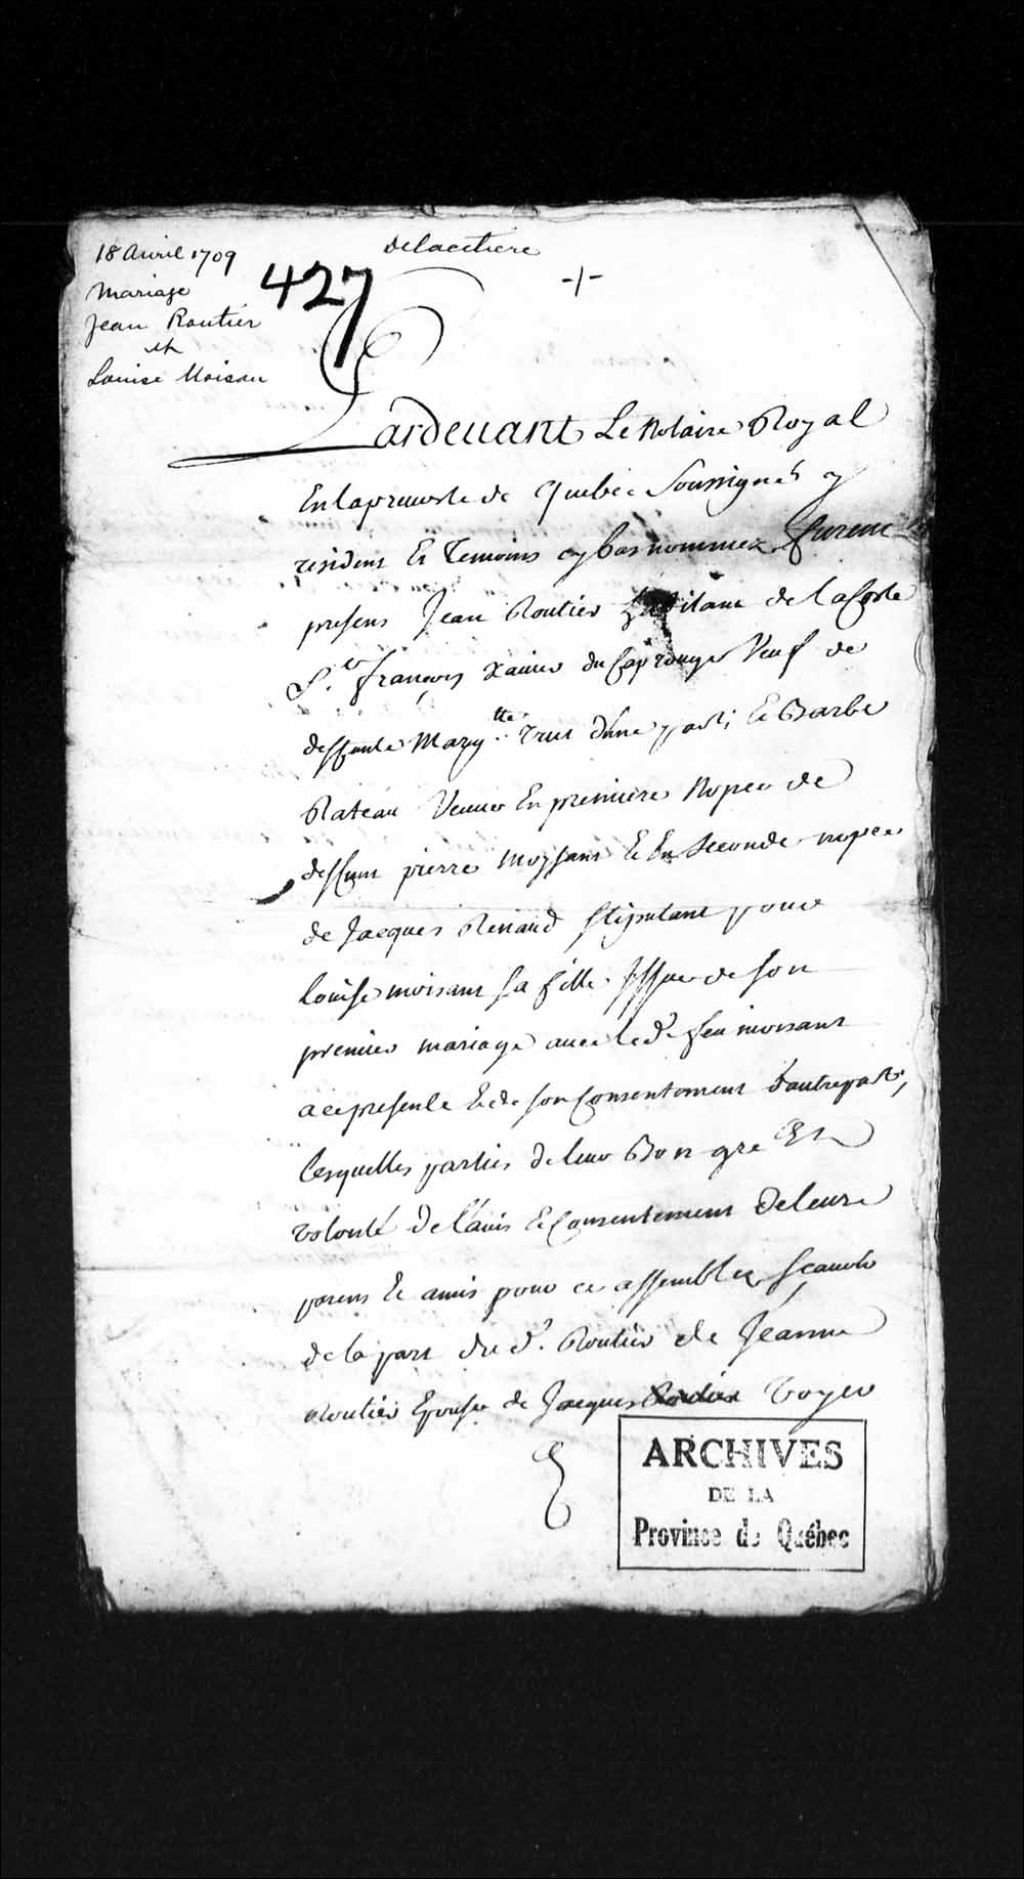 18 Avril 1709
Mariage
Jean Routier
et
Louise Moisan
427
delacetiere
Pardeuant Le Notaire Royal
En la preuosté de Quebec Soussigné y
resident Et Temoins cy bas nommez furent
presens Jean Routier habitant de la Coste
St françois Xauier du Cap rouge Veuf de
deffunte Margtte trut d'une part; Et Barbe
Rateau Veuue En premiere Nopce de
deffunt pierre moysant Et En Seconde nopce
de Jacques Renaud stipulant pour
louise moisant sa fille Issue de son
premier mariage auec led. feu moisant
a ce presente Et de son Consentement d'autre part,
lesquelles parties de leur Bon gré Et
volonté de l'auis Et Consentement de leurs
parens Et amis pour ce assemblez sçauoir
de la part du d. Routier de Jeanne
Routier Epouse de Jacques Voyer
ARCHIVES
DE LA
Province de Québec